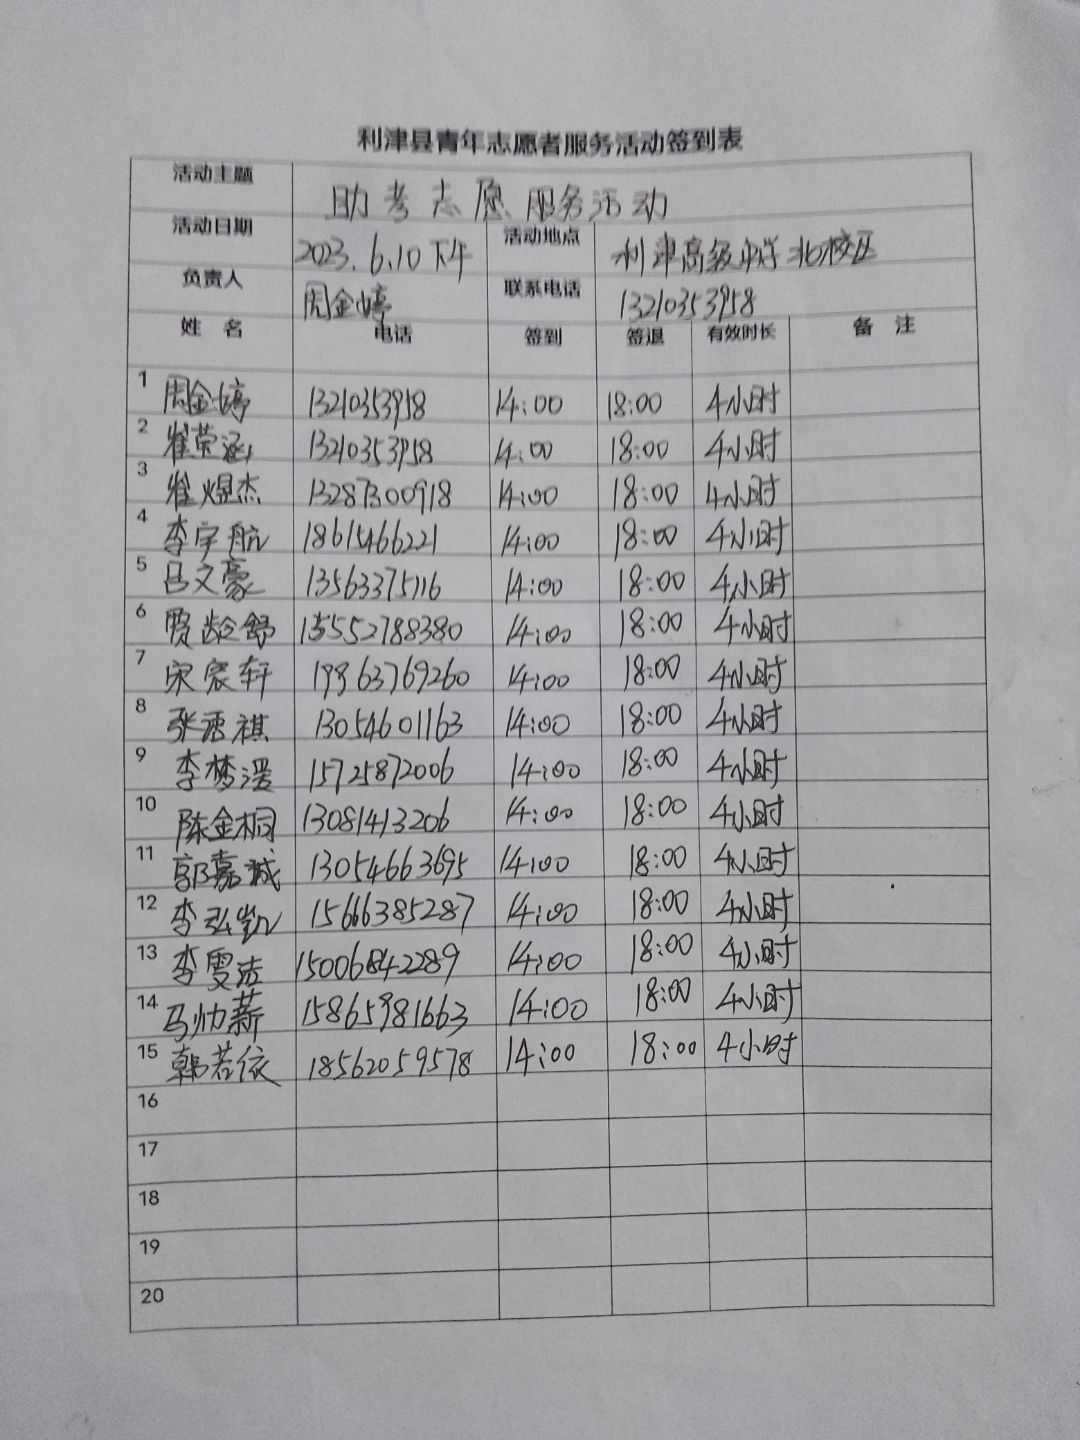 利津县青年志愿者服务活动签到表
活动主题 助考志愿服务活动
活动日期 2023.6.10下午 活动地点 利津高级中学北校区
负责人 周金婷 联系电话 13210353958
姓名 电话 签到 签退 有效时长 备注
1 周金婷 13210353958 14:00 18:00 4小时
2 崔荣涵 13210353958 14:00 18:00 4小时
3 崔煜杰 13287300918 14:00 18:00 4小时
4 李宇航 18615466221 14:00 18:00 4小时
5 吕文豪 13563375116 14:00 18:00 4小时
6 贾龄舒 15552788380 14:00 18:00 4小时
7 宋宸轩 19963769260 14:00 18:00 4小时
8 张祺 13054601163 14:00 18:00 4小时
9 李梦瑶 15725872006 14:00 18:00 4小时
10 陈金桐 13081413206 14:00 18:00 4小时
11 郭嘉诚 13054663695 14:00 18:00 4小时
12 李弘凯 15666385287 14:00 18:00 4小时
13 李雯洁 15006842289 14:00 18:00 4小时
14 马帅薪 15865981663 14:00 18:00 4小时
15 韩若依 18562059578 14:00 18:00 4小时
16
17
18
19
20